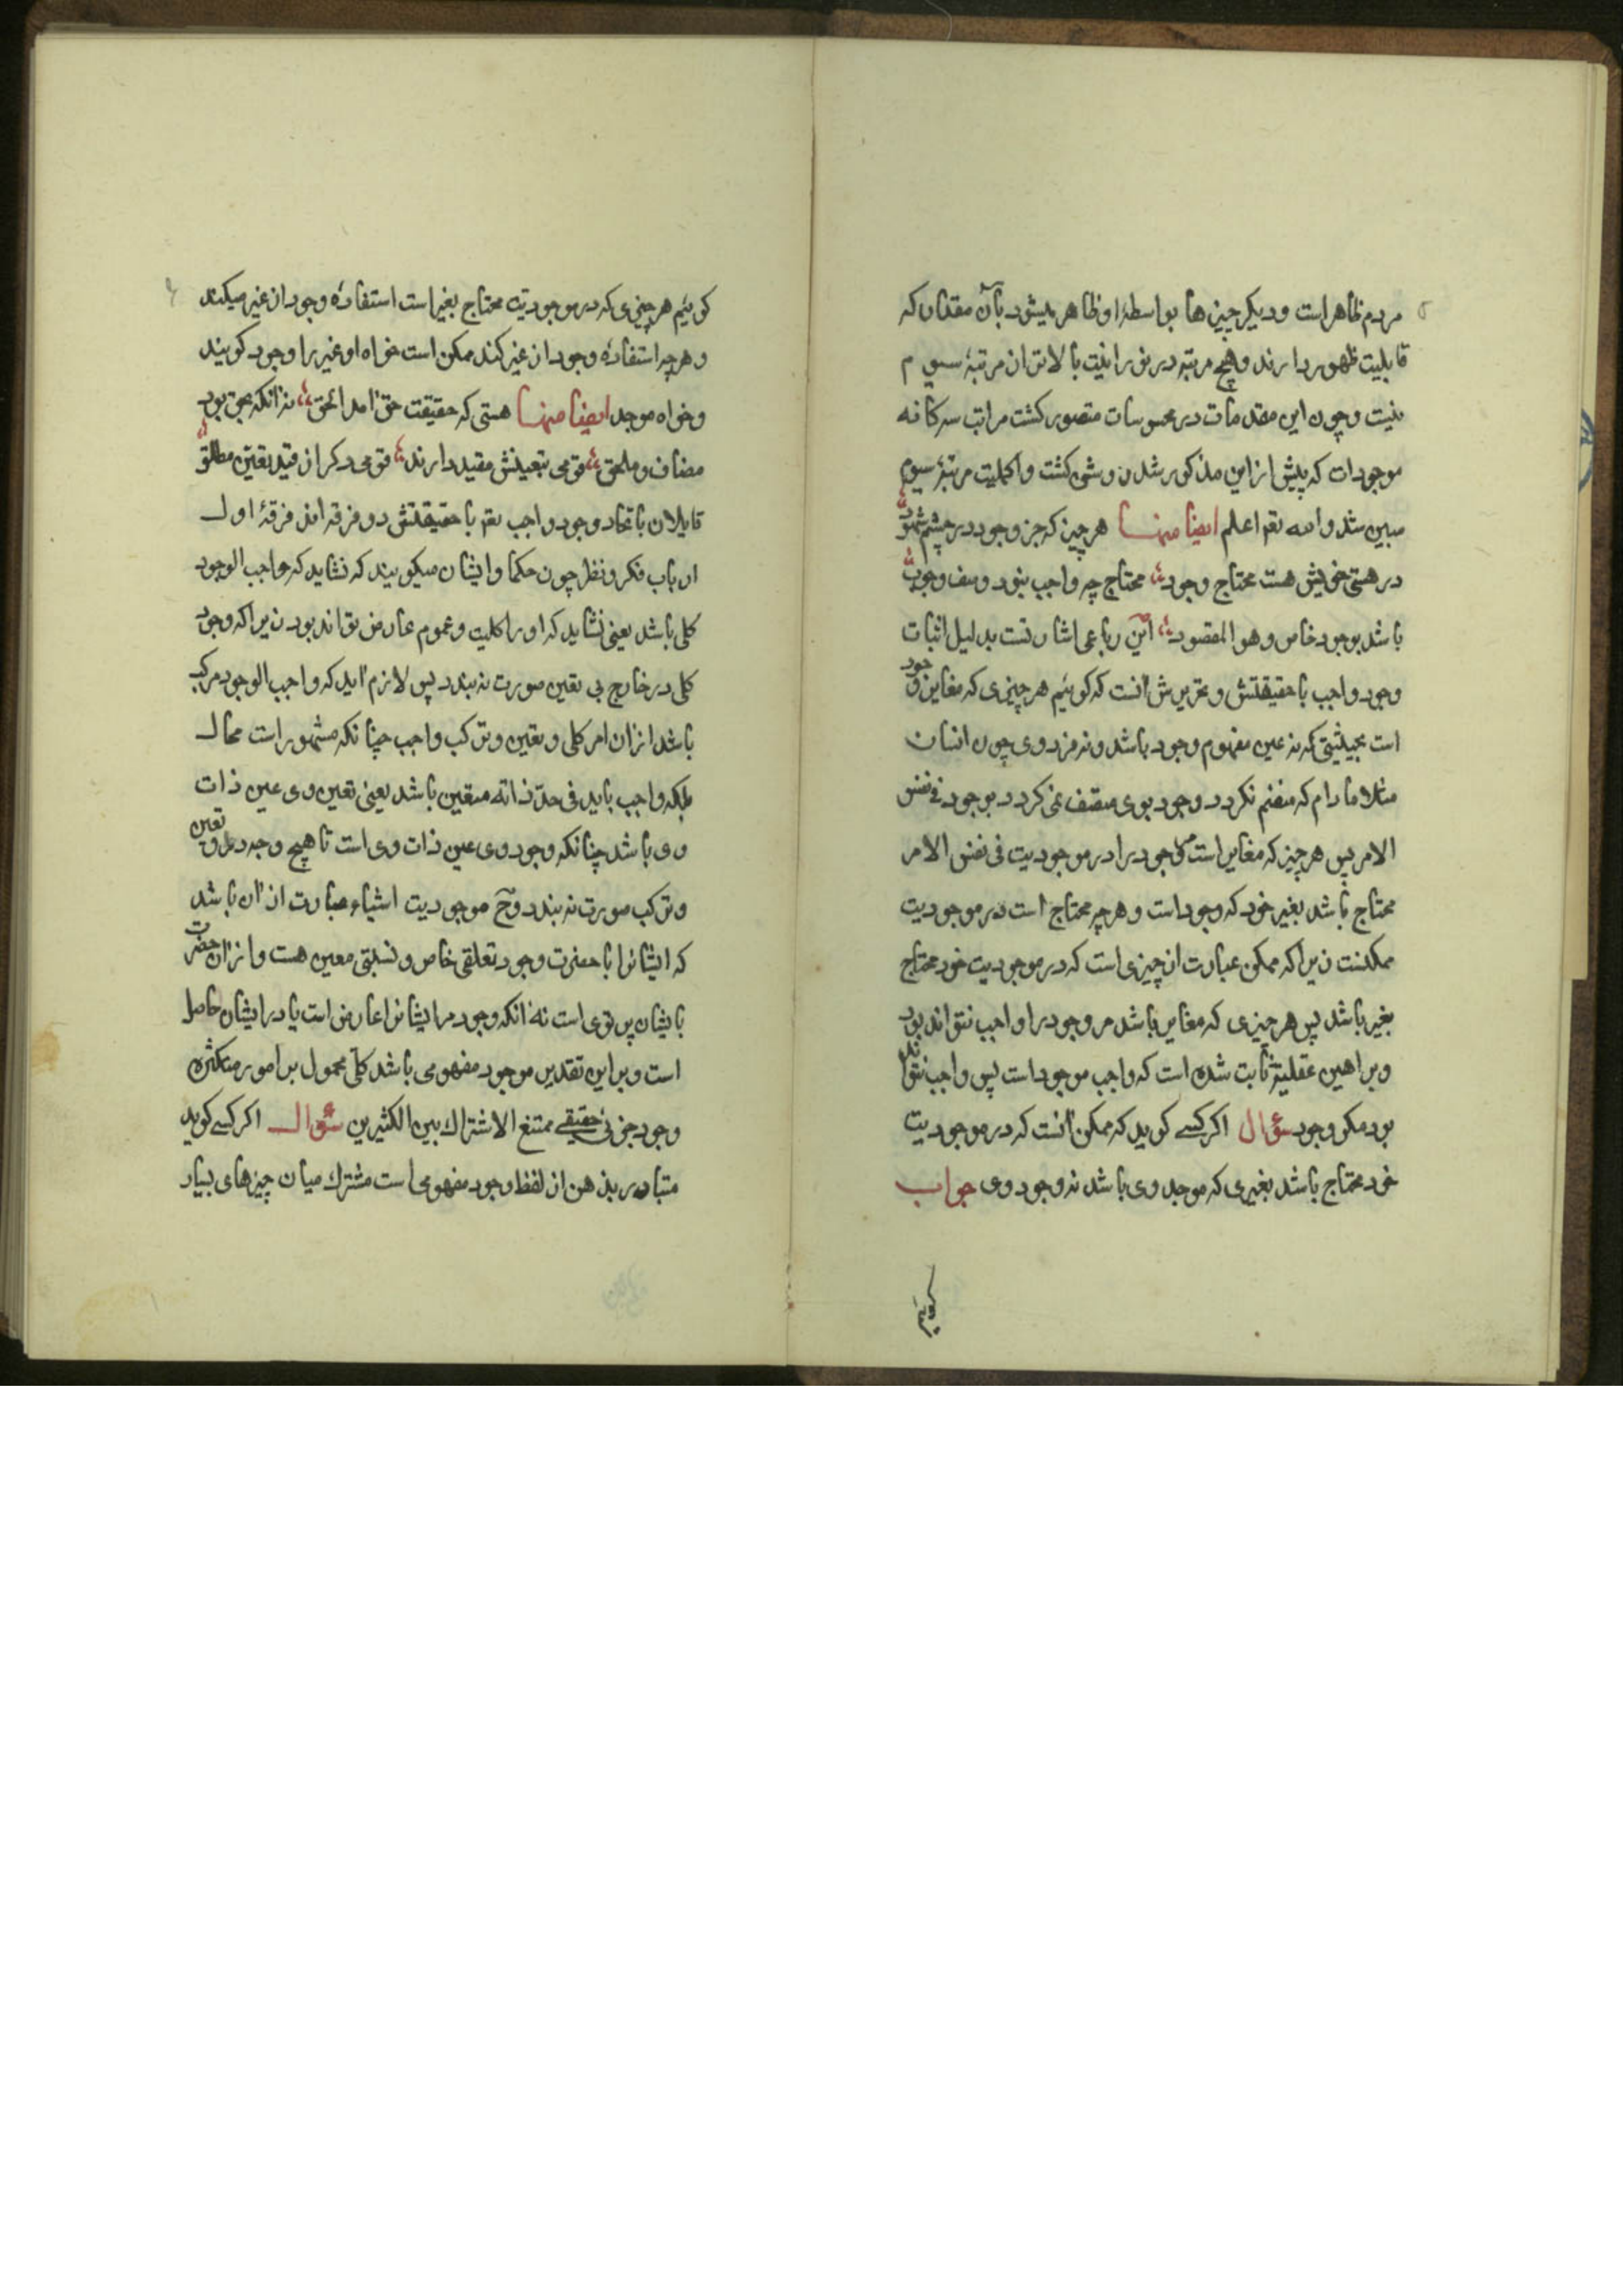 مردم ظاهر است و دیکر چیزها بواسطۀ او ظاهر میشود بآن مقدار که
قابلیت ظهور دارند و هیچ مرتبه در نورانیت بالاتر ازان مرتبۀ سیوم
نیست و چون این مقدمات در محسوسات متصور کشت مراتب سه کانه
موجودات که پیش ازاین مذکور شد روشن کشت و اکملیت مرتبۀ سیوم
مبین شد والله تعم اعلم ایضا منها هر چیز که جز وجود در چشم شهود
در هستی خویش هست محتاج وجود محتاج چو واجب نبود وصف وجوب
باشد بوجود خاص و هو المقصود این رباعی اشارتست بدلیل اثبات
وجود واجب با حقیقتش و تقریرش آنست که کوئیم هر چیزی که مغایر وجود
است بحیثیتی که نه عین مفهوم وجود باشد و نه فرد وی چون انسان
مثلا مادام که منضم نکردد وجود بوی متصف نمی کردد بوجود فی نفس
الامر پس هر چیز که مغایر است مر وجود را در موجودیت فی نفس الامر
محتاج باشد بغیر خود که وجود است و هر چه محتاج است در موجودیت
ممکنست زیرا که ممکن عبارت از چیزی است که در موجودیت خود محتاج
بغیر باشد پس هر چیزی که مغایر باشد مر وجود را واجب نتواند بود
و براهین عقلیة ثابت شده است که واجب موجود است پس واجب نتواند
بود مکر وجود سؤال اکر کسے کوید که ممکن آنست که در موجودیت
خود محتاج باشد بغیری که موجد وی باشد نه وجود وی جواب
کوئیم
کوئیم هر چیزی که در موجودیت محتاج بغیر است استفادۀ وجود از غیر میکند
و هر چه استفادۀ وجود از غیر کند ممکن است خواه او غیر را وجود کویند
و خواه موجد ایضا منها هستی که حقیقت حق آمد الحق نه آنکه بحق بود
مضاف و ملحق قومی بتعینش مقید دارند قومی دکر از قید تعین مطلق
قایلان باتحاد وجود واجب تعم با حقیقتش دو فرقه اند فرقۀ اول
ارباب فکر و نظر چون حکما و ایشان میکویند که نشاید که واجب الوجود
کلی باشد یعنی نشاید که اورا کلیت و عموم عارض تواند بود زیرا که وجود
کلی در خارج بی تعین صورت نه بندد پس لازم آید که واجب الوجود مرکب
باشد ازان امر کلی و تعین و ترکب واجب چنانکه مشهور است محال
بلکه واجب باید فی حدّ ذاته متعین باشد یعنی تعین وی عین ذات
وی باشد چنانکه وجود وی عین ذات وی است تا هیچ وجه درو تعین
و ترکب صورت نه بندد و ح موجودیت اشیاء عبارت از آن باشد
که ایشانرا با حضرت وجود تعلقی خاص و نسبتی معین هست و ازان حضرت
بایشان پرتوی است نه آنکه وجود مر ایشانرا عارض است یا در ایشان حاصل
است و براین تقدیر موجود مفهومی باشد کلّی محمول بر امور متکثره
وجود جزئی حقیقے ممتنع الاشتراک بین الکثیرین سؤال اکر کسے کوید
متبادر بذهن از لفظ وجود مفهومی است مشترک میان چیزهای بسیار